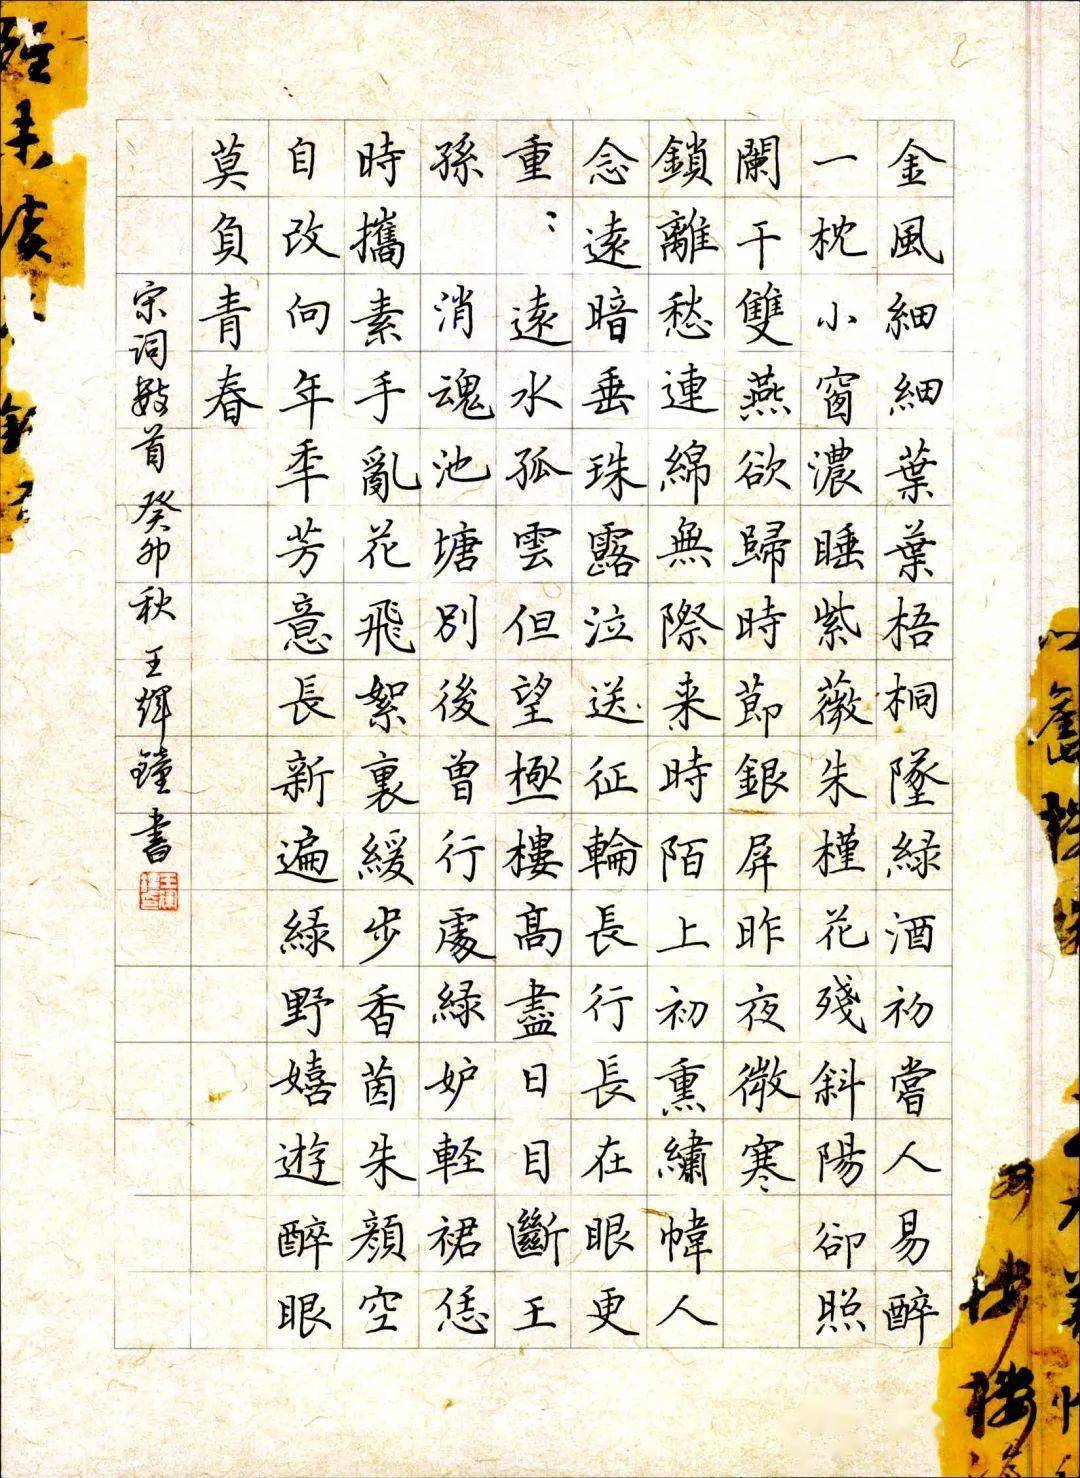 金風細細葉葉梧桐墜緑酒初嘗人易醉
一枕小窗濃睡紫薇朱槿花殘斜陽卻照
闌干雙燕欲歸時節銀屏昨夜微寒
鎖離愁連綿無際来時陌上初熏繡幃人
念遠暗垂珠露泣送征輪長行長在眼更
重〻遠水孤雲但望極樓高盡日目斷王
孫 消魂池塘別後曾行處緑妒軽裙恁
時攜素手亂花飛絮裏緩步香茵朱顏空
自改向年年芳意長新遍緑野嬉遊醉眼
莫負青春
宋詞數首 癸卯秋 王輝鐘書